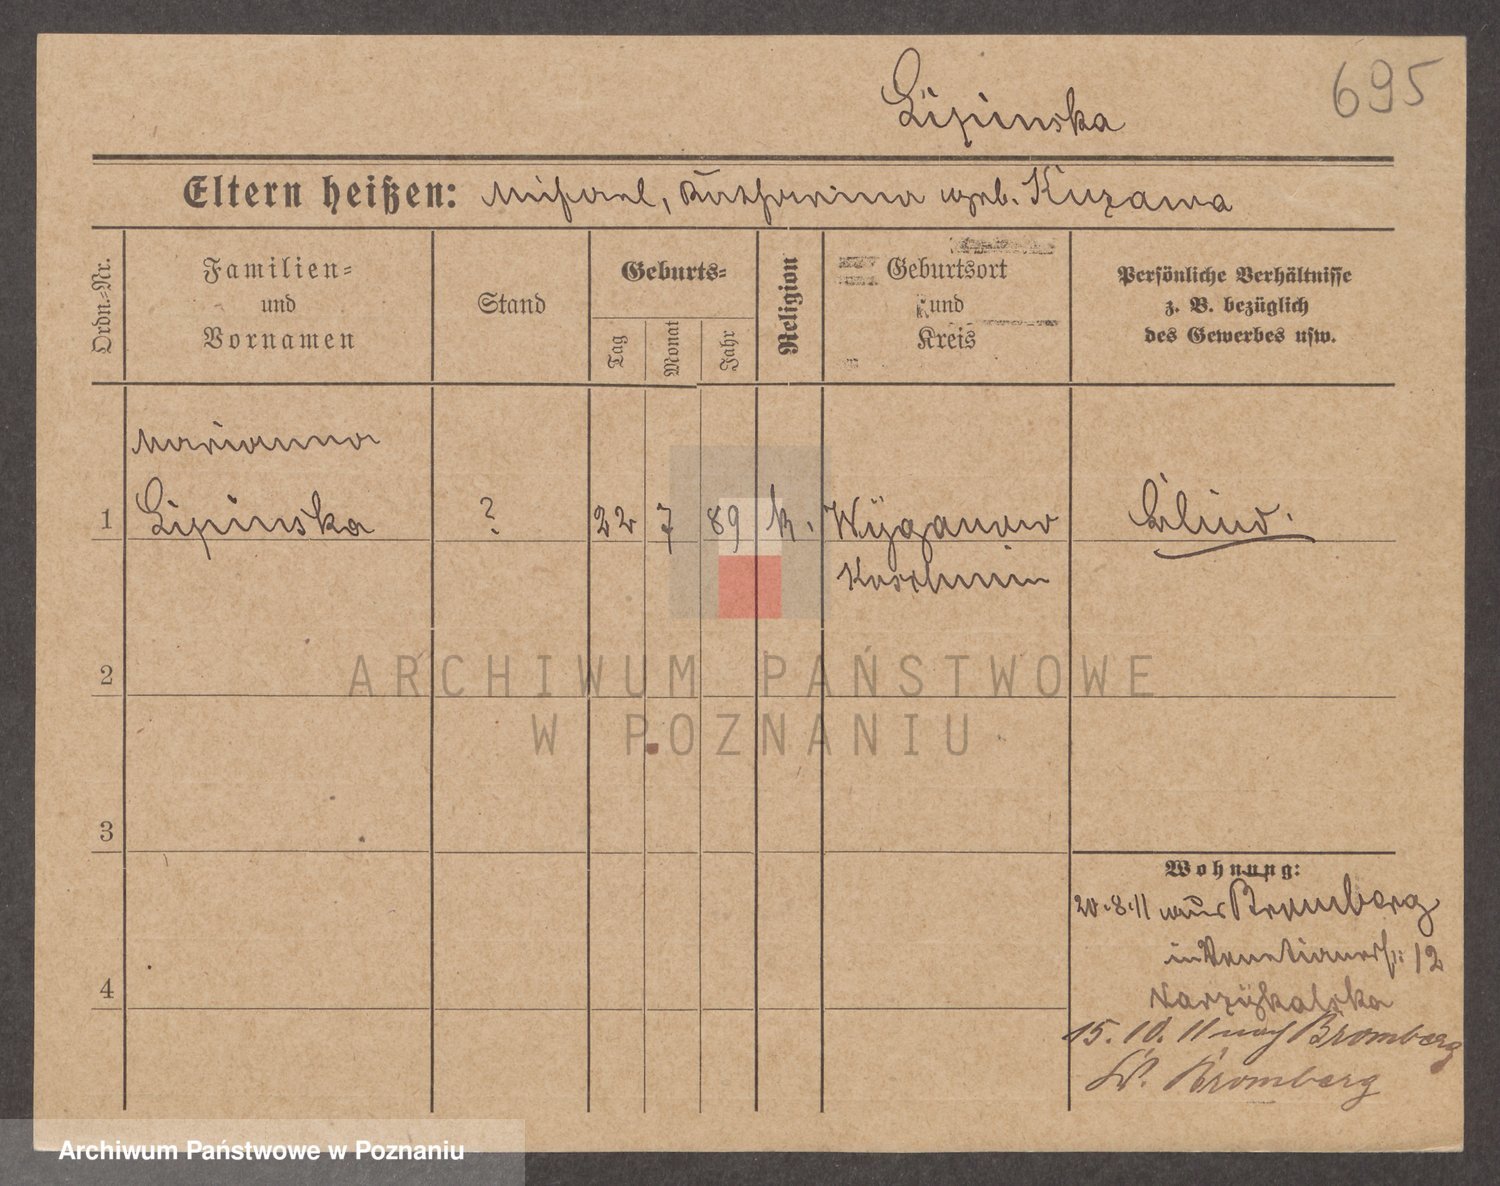 Lipinska
695
Eltern heißen: Michael, Katharina geb. Kuzawa
Ordn.-Nr.
Familien-
und
Vornamen
Stand
Geburts-
Tag
Monat
Jahr
Religion
Geburtsort
und
Kreis
Persönliche Verhältnisse
z. B. bezüglich
des Gewerbes usw.
Marianna
1 Lipinska ? 22 7 89 k. Wÿganow
Koschmin
Blind.
2
ARCHIWUM PAŃSTWOWE
W POZNANIU
3
Wohnung:
20.8.11 aus Bromberg
in Venetianerstr. 12
4
15.10.11 nach Bromberg
Bromberg
Archiwum Państwowe w Poznaniu